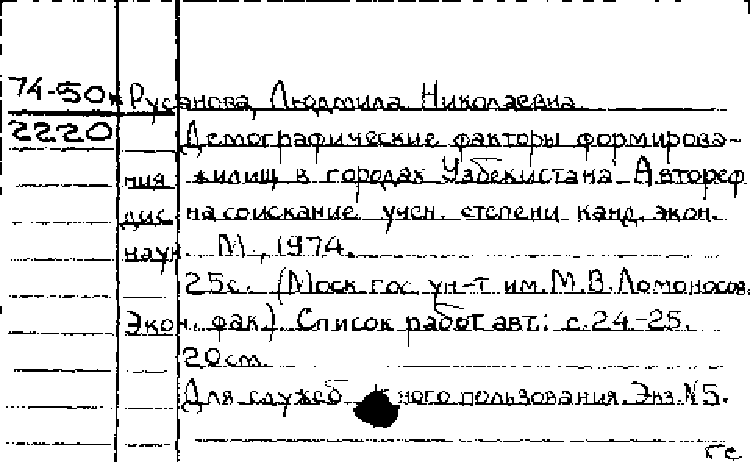 74-50к Русанова, Людмила Николаевна.
2220 Демографические факторы формирова-
ния жилищ в городах Узбекистана. Автореф
дис. на соискание учен. степени канд. экон.
наук. М., 1974.
25с. (Моск гос. ун-т им. М.В. Ломоносов.
Экон. фак.). Список работ авт.: с.24-25.
20см.
Для служеб ного пользования. Экз. N5.